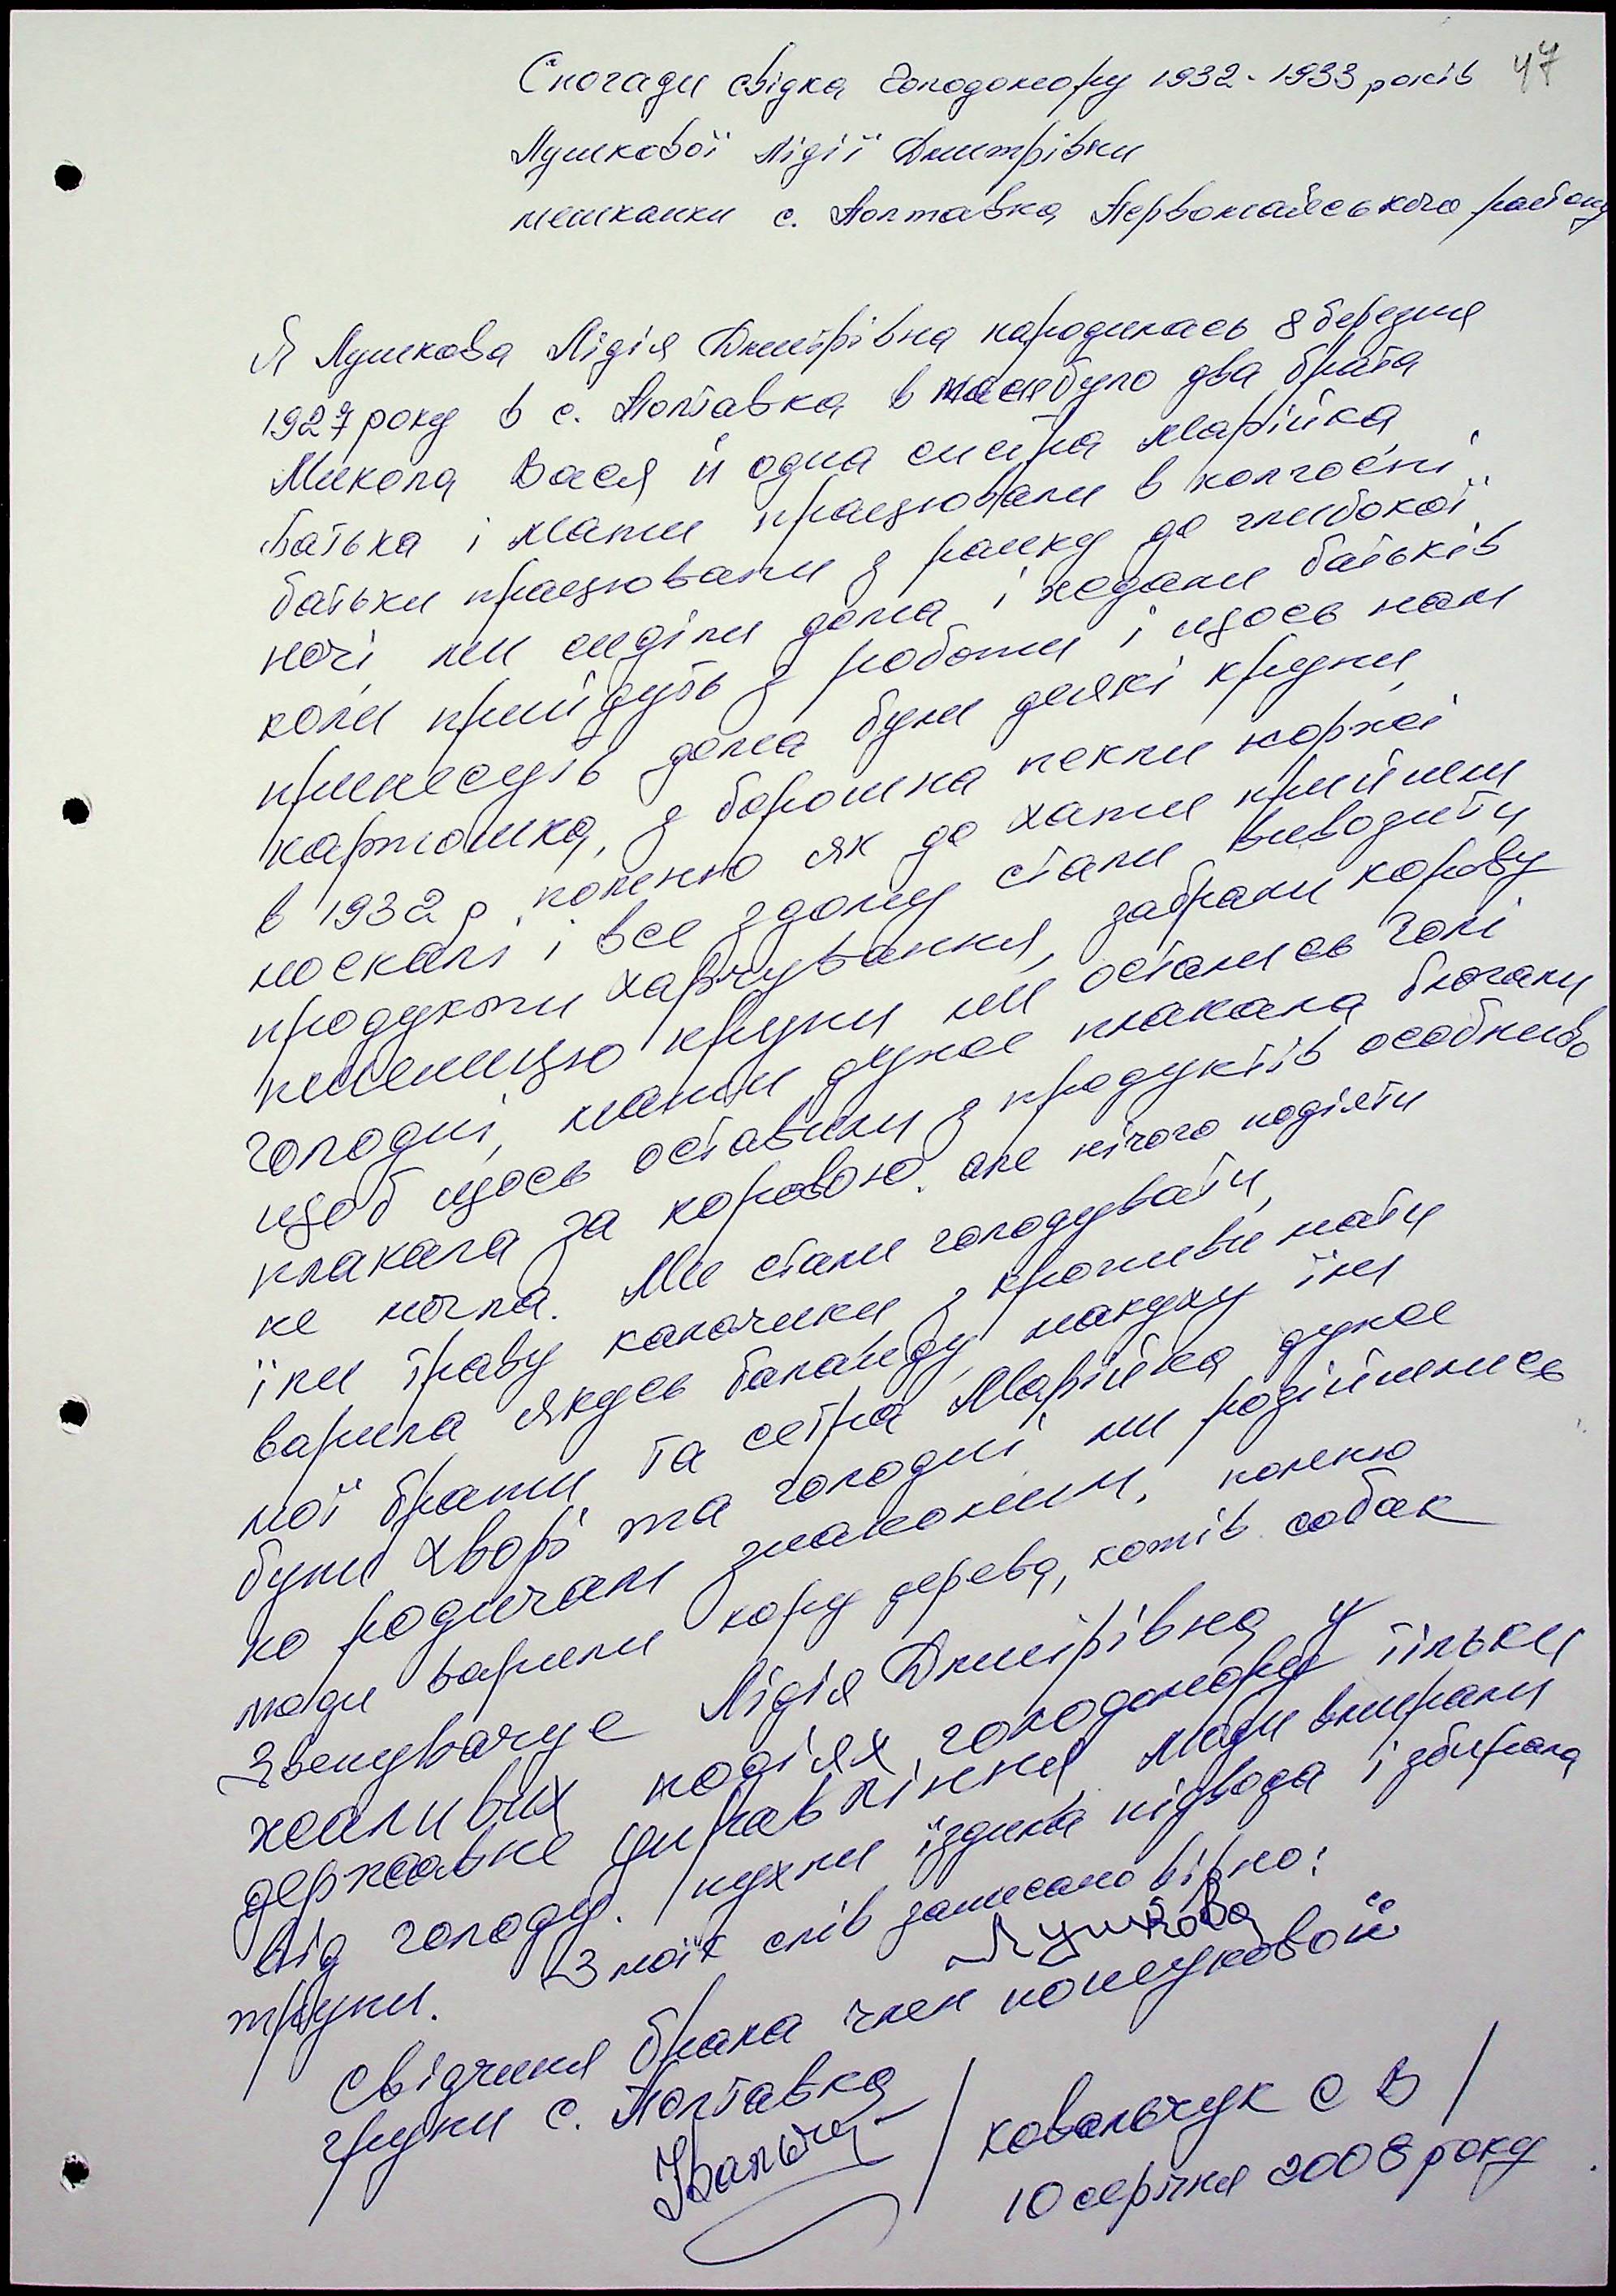 47
Спогади свідка Голодомору 1932-1933 років
Лушкової Лідії Дмитрівни
мешканки с. Полтавка Первомайського району
Я Лушкова Лідія Дмитрівна народилась 8 березня
1927 року в с. Полтавка в мене було два брата
Микола Вася й одна систра Марійка,
батька і мати працювали в колгоспі.
батьки працювали з ранку до глибокої
ночі, ми сиділи дома і ждали батьків
коли прийдуть з роботи і щось нам
принесуть дома були деякі крупи,
картошка, з борошна пекли коржі
в 1932 р. помню як до хати прийшли
москалі і все здому стали вивозити
продукти харчування, забрали корову
пшеницю крупи ми остались голі
голодні, мати дуже плакала благали
щоб щось оставили з продуктів особливо
плакала за коровою. але нічого поділати
не могла. Ми стали голодувати,
їли траву калачики з кропиви мати
варила якусь баланду, макуху їли
мої брати та сетра Марійка дуже
були хворі та голодні ми розійшлись
по родичам знакомим. помню
люди варили кору дерева, котів собак
Звенувачує Лідія Дмитрівна у
жахливих подіях голодомору тільки
державне управління люди вмирали
від голоду. пухли їздила підвода і збирала
трупи. З моїх слів записано вірно:
Лушкова
Свідчиня брала член пошуковой
групи с. Полтавка
/ Ковальчук С В /
10 серпня 2008 року